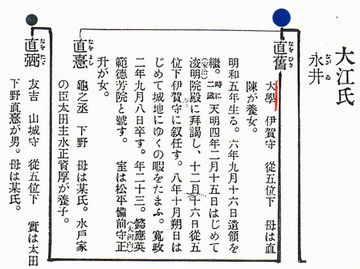 大江氏
永井
直舊
大學 伊賀守 從五位下 母は直
陳が養女。
明和五年生る。六年九月十六日遺領を
繼。時に二歳 天明四年二月十五日はじめて
浚明院殿に拜謁し、十二月十六日從五
位下伊賀守に叙任す。八年十月朔日は
じめて城地にゆくの暇をたまふ。寬政
二年九月八日卒す。年二十三。懿應英
範德芳院と號す。 室は松平備前守正
升が女。
直憙
龜之丞 下野 母は某氏。水戶家
の臣太田主水正資厚が養子。
直弼
友吉 山城守 從五位下 實は太田
下野直憙が男。母は某氏。